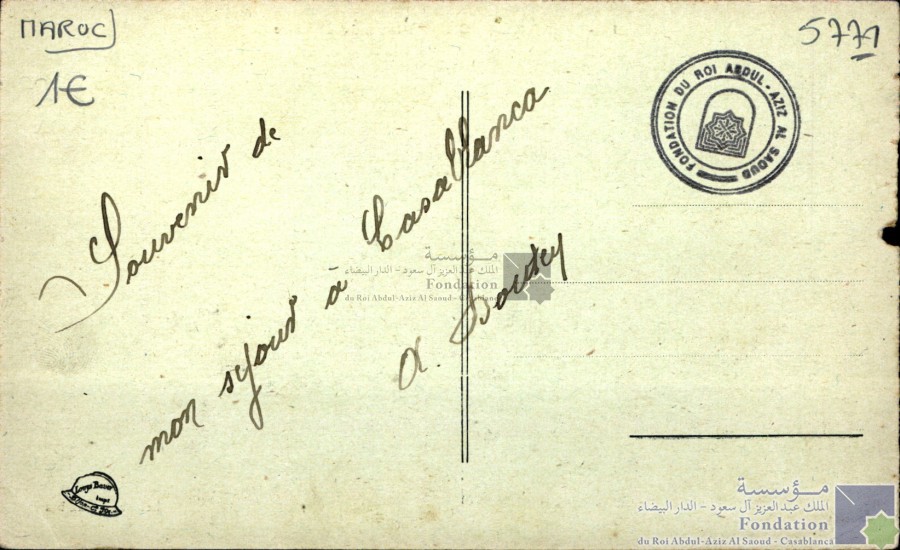 MAROC
5771
1€
FONDATION DU ROI ABDUL-AZIZ AL SAOUD
Souvenir de
mon séjour à Casablanca
مؤسسة
الملك عبد العزيز آل سعود - الدار البيضاء
Fondation
du Roi Abdul-Aziz Al Saoud - Casablanca
مؤسسة
الملك عبد العزيز آل سعود - الدار البيضاء
Fondation
du Roi Abdul-Aziz Al Saoud - Casablanca